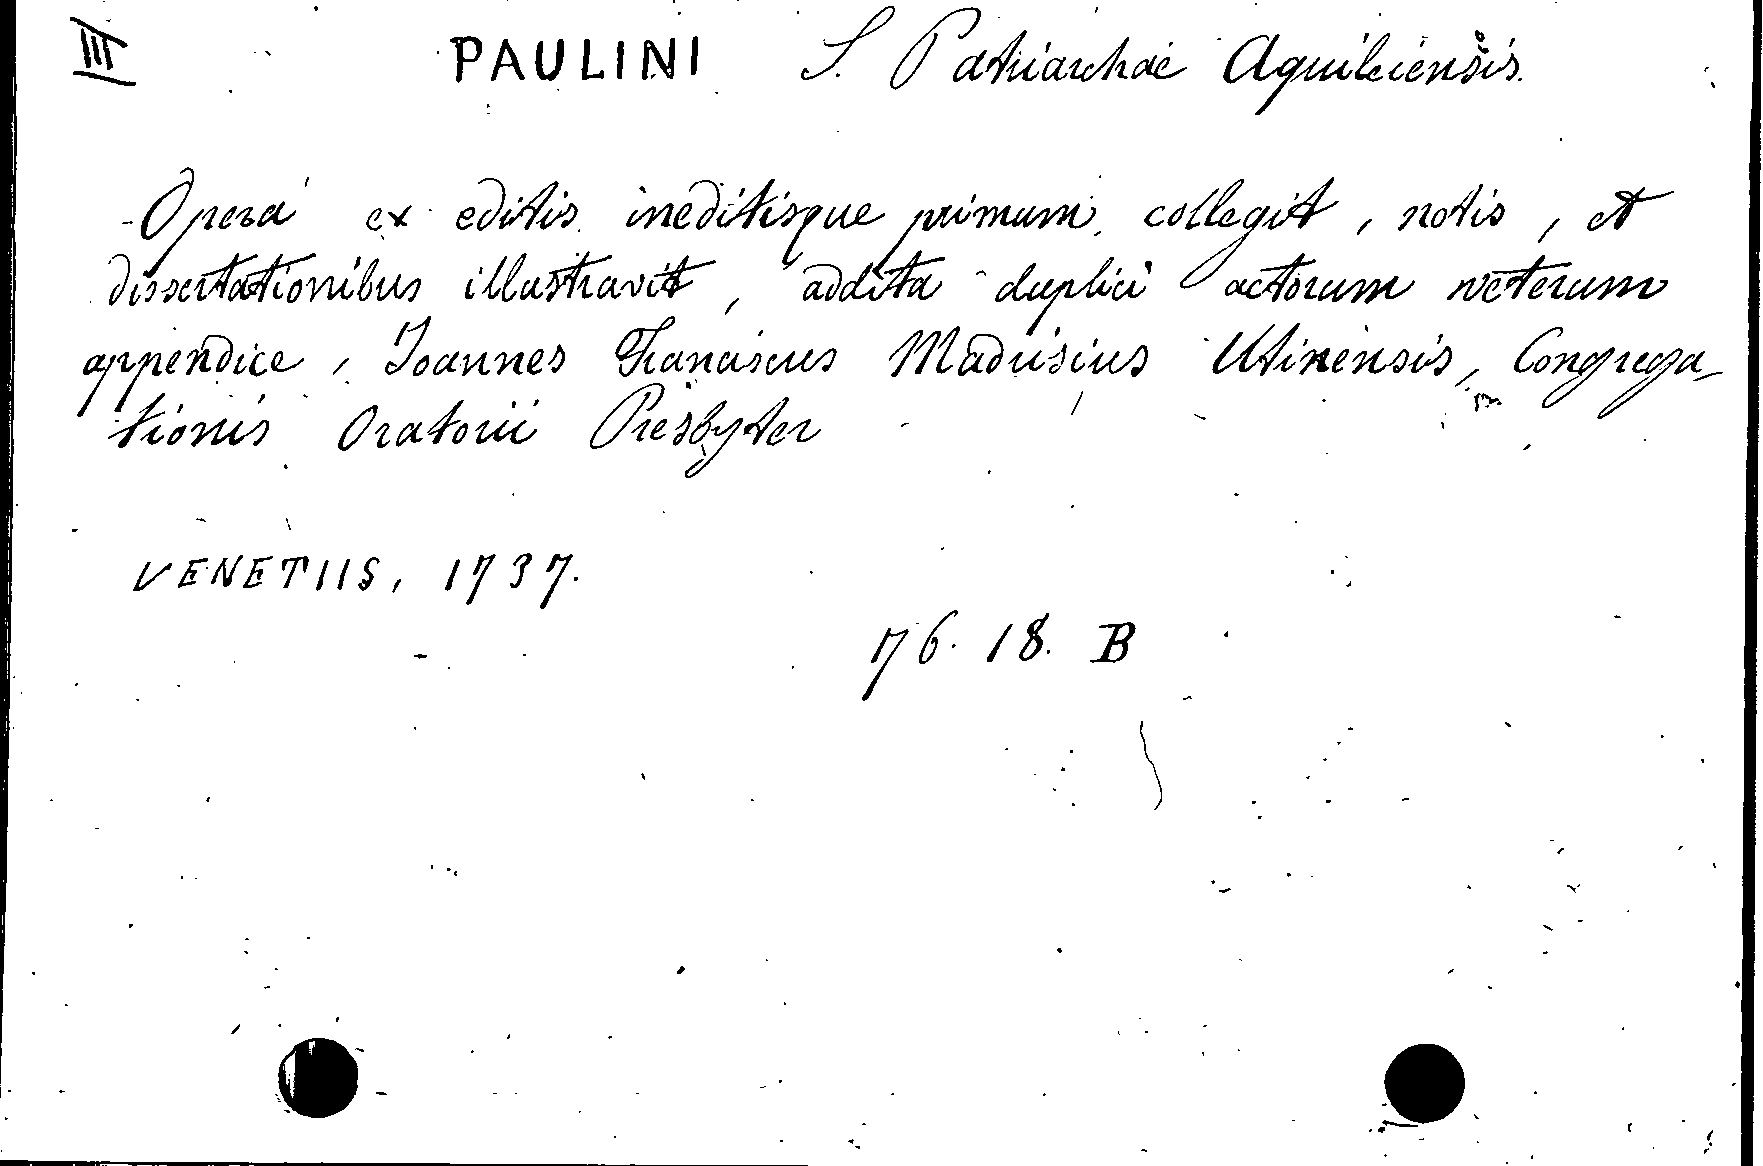 III PAULINI S. Patriarchae Aquileiensis.
Opera ex editis ineditisque primum collegit, notis, et
dissertationibus illustravit, addita duplici actorum veterum
appendice, Joannes Franciscus Madrisius Utinensis, Congrega-
tionis Oratorii Presbyter
VENETIIS, 1737.
76. 18. B